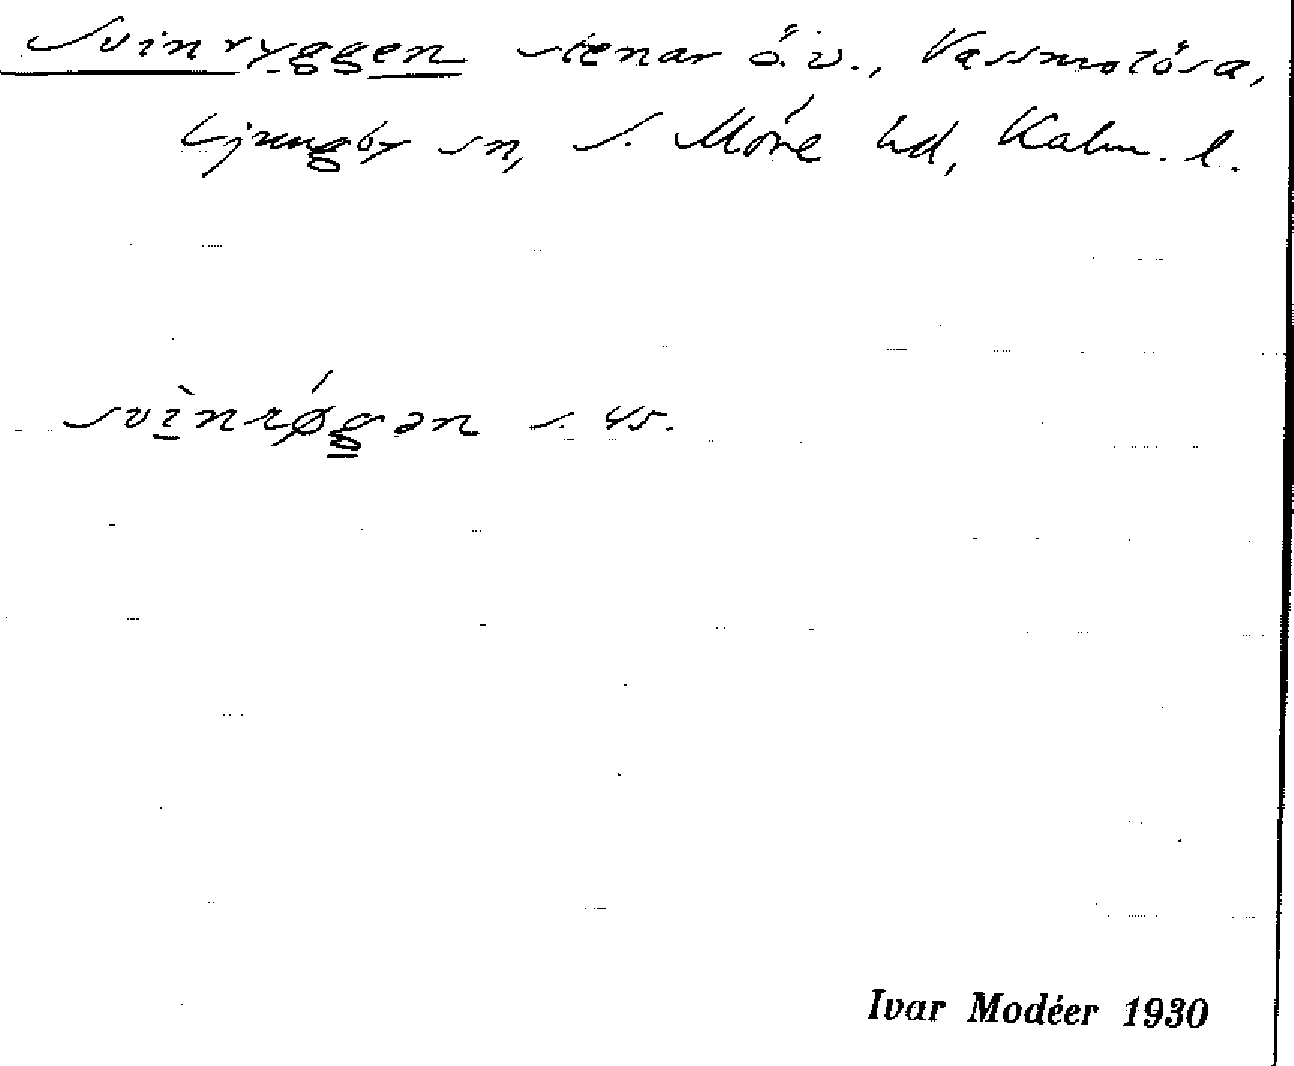 Svinryggen stenar ö.v., Vassmolösa,
Ljungby sn, S. Möre hd, Kalm. l.
svìnrǿgən s. 45.
Ivar Modéer 1930